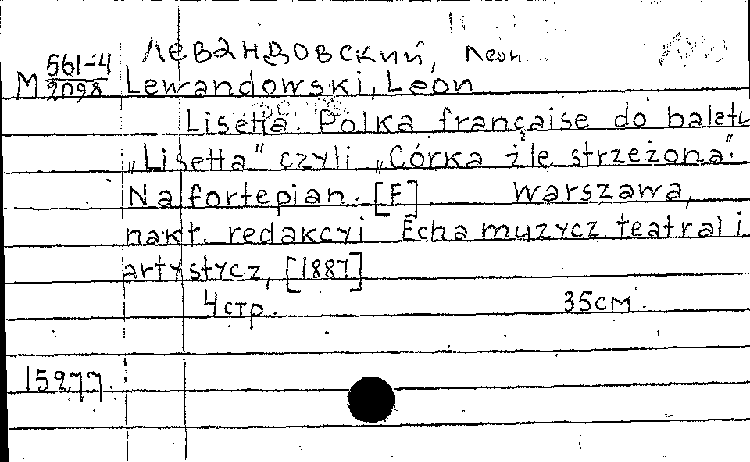 Левандовский, Леон
М 561-4/2098 Lewandowski, Leon
Lisetta. Polka française do baletu
„Lisetta" czyli „Córka źle strzeżona".
Na fortepian. [F] Warszawa,
nakł. redakcyi Echa muzycz teatral i
artystycz, [1887]
4 стр. 35 см.
15277.